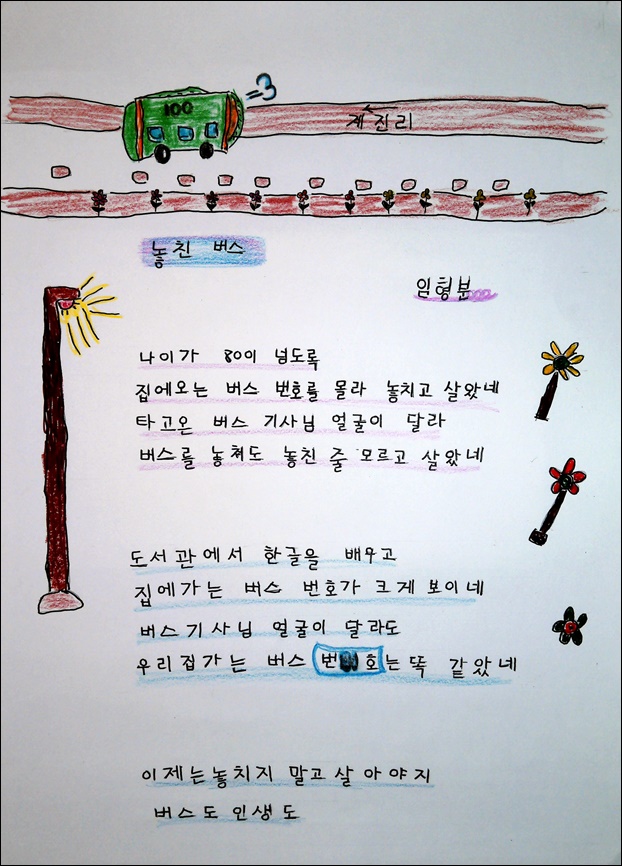 100
제진리
놓친 버스
임형분
나이가 80이 넘도록
집에오는 버스 번호를 몰라 놓치고 살았네
타고온 버스 기사님 얼굴이 달라
버스를 놓쳐도 놓친 줄 모르고 살았네
도서관에서 한글을 배우고
집에가는 버스 번호가 크게 보이네
버스기사님 얼굴이 달라도
우리집가는 버스 번호는 똑 같았네
이제는놓치지 말고살아야지
버스도 인생도